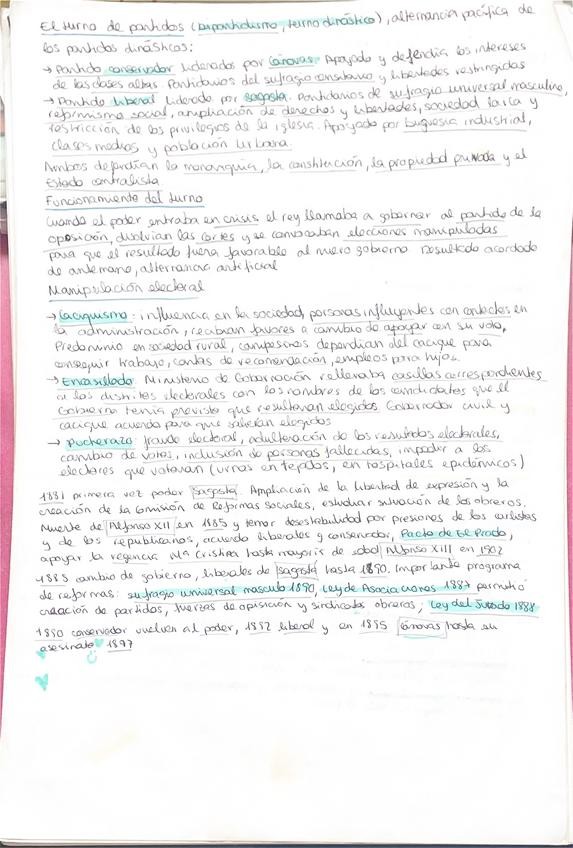 El turno de partidos (bipartidismo, turno dinástico), alternancia pacífica de
los partidos dinásticos:
→ Partido conservador liderados por Cánovas. Apoyado y defendía los intereses
de las clases altas. Partidarios del sufragio censitario y libertades restringidas
→ Partido liberal liderado por Sagasta. Partidarios de sufragio universal masculino,
reformismo social, ampliación de derechos y libertades, sociedad laica y
restricción de los privilegios de la iglesia. Apoyado por burguesia industrial,
clases medias y población urbana.
Ambos defendían la monarquía, la constitución, la propiedad privada y el
Estado centralista.
Funcionamiento del turno
Cuando el poder entraba en crisis el rey llamaba a gobernar al partido de la
oposición, disolvian las cortes y se convocaban elecciones manipuladas
para que el resultado fuera favorable al nuevo gobierno Resultado acordado
de antemano, alternancia artificial
Manipulación electoral
→ Caciquismo: influencia en la sociedad, personas influyentes con contactos en
la administración, recibían favores a cambio de apoyar con su voto,
Predominio en sociedad rural, campesinos dependian del cacique para
conseguir trabajo, cartas de recomendación, empleos para hijos.
→ Encasillado: Ministerio de Gobernación rellenaba casillas correspondientes
a los distritos electorales con los nombres de los candidatos que el
Gobierno tenía previsto que resultaran elegidos Gobernador civil y
cacique acuerdo para que salieran elegidos
→ Pucherazo: fraude electoral, adulteración de los resultados electorales,
cambio de votos, inclusión de personas fallecidas, impedir a los
electores que votaran (urnas en tejados, en hospitales epidémicos)
1881 primera vez poder Sagasta. Ampliación de la libertad de expresión y la
creación de la Comisión de Reformas sociales, estudiar situación de los obreros.
Muerte de Alfonso XII en 1885 y temor desestabilidad por presiones de los carlistas
y de los republicanos, acuerdo liberales y conservador, Pacto de El Pardo,
apoyar la regencia Mª Cristina hasta mayoría de edad Alfonso XIII en 1902
1885 cambio de gobierno, liberales de Sagasta hasta 1890. Importante programa
de reformas: sufragio universal masculo 1890, Ley de Asociaciones 1887 permitió
creación de partidos, fuerzas de oposición y sindicatos obreros, Ley del Jurado 1888
1890 conservador vuelven al poder, 1892 liberal y en 1895 Cánovas hasta su
asesinato 1897